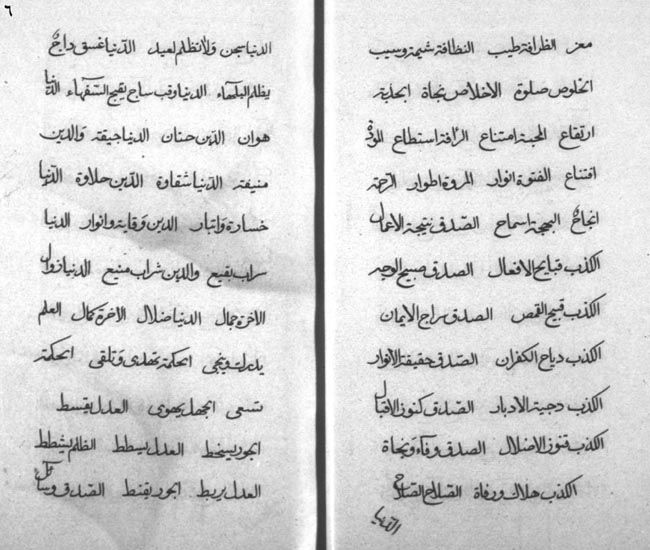 معز الظرافة طيب النظافة شيمة وسيب
الخلوص صلوة الاخلاص نجاة المحبة
ارتفاع المحبة امتناع الرأفة استطاع المودة
اقتناع الفتوة انوار المروة اطوار الرحمة
انجاح البهجة اسماح الصدق نتيجة الاعمال
الكذب قبايح الافعال الصدق صبيح الوجه
الكذب قبيح القمص الصدق سراج الايمان
الكذب دياج الكفران الصدق حقيقة الانوار
الكذب دجية الادبار الصدق كنوز الاقبال
الكذب فنون الاضلال الصدق وفاء ونجاة
الكذب هلاك ورفاة الصلاح الصلاح
الدنيا
٦
الدنيا سجن ولا تظلم لعبد الدنيا غسق داج
يظلم البلهاء الدنيا وقب ساج يقبح السفهاء الدنيا
هوان الدين حنان الدنيا جيفة والدين
منيفة الدنيا شقاوة الدين حلاوة الدنيا
خسارة واتبار الدين وقاية وانوار الدنيا
سراب بقيع والدين شراب منيع الدنيا زوال
الاخرة جمال الدنيا ضلال الاخرة كمال العلم
يدرك وينجى الحكمة تهدى وتلقى الحكمة
تسعى الجهل يهوى العدل يقسط
الجور يسخط العدل يبسط الظلم يشطط
العدل يربط الجور يقنط الصدق وسائل